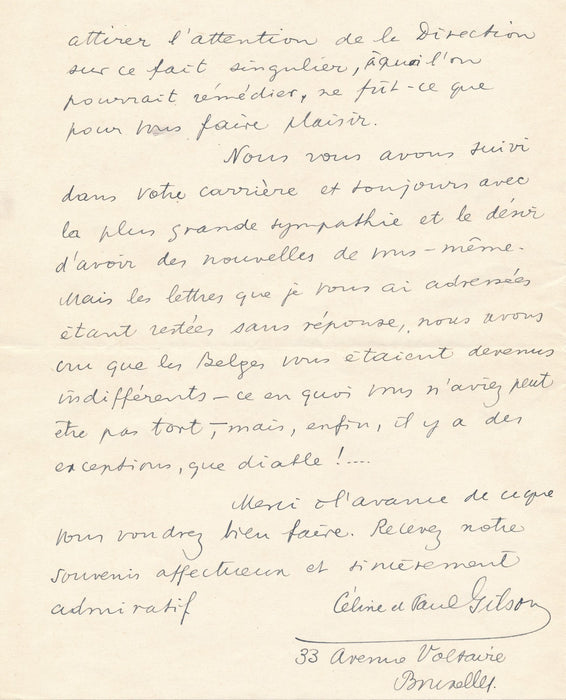 attirer l'attention de la Direction
sur ce fait singulier, à quoi l'on
pourrait remédier, ne fût-ce que
pour vous faire plaisir.
Nous vous avons suivi
dans votre carrière et toujours avec
la plus grande sympathie et le désir
d'avoir des nouvelles de vous-même.
Mais les lettres que je vous ai adressées
étant restées sans réponse, nous avons
cru que les Belges vous étaient devenus
indifférents - ce en quoi vous n'aviez peut
être pas tort, - mais, enfin, il y a des
exceptions, que diable !....
Merci d'avance de ce que
vous voudrez bien faire. Recevez notre
souvenir affectueux et sincèrement
admiratif
Céline et Paul Gilson
33 Avenue Voltaire
Bruxelles.